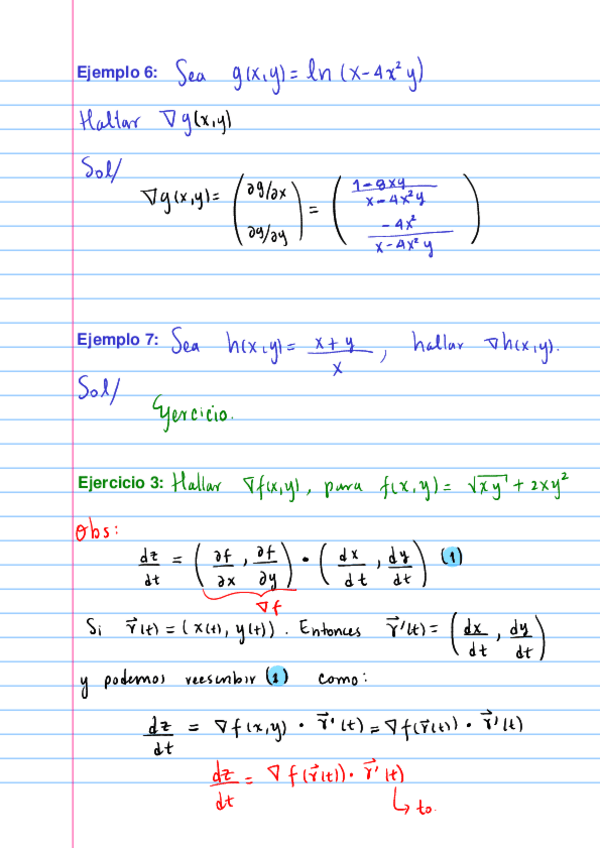 Ejemplo 6: Sea g(x,y) = ln (x-4x²y)
Hallar ∇g(x,y)
Sol/
∇g(x,y) = (∂g/∂x ∂g/∂y) = ((1-8xy)/(x-4x²y) (-4x²)/(x-4x²y))
Ejemplo 7: Sea h(x,y) = (x+y)/x, hallar ∇h(x,y).
Sol/
Ejercicio.
Ejercicio 3: Hallar ∇f(x,y), para f(x,y) = √xy + 2xy²
Obs:
dz/dt = (∂f/∂x, ∂f/∂y) • (dx/dt, dy/dt) (1)
∇f
Si r⃗(t) = (x(t), y(t)). Entonces r⃗'(t) = (dx/dt, dy/dt)
y podemos reescribir (1) como:
dz/dt = ∇f(x,y) • r⃗'(t) = ∇f(r⃗(t)) • r⃗'(t)
dz/dt = ∇f(r⃗(t)) • r⃗'(t)
↳ to.